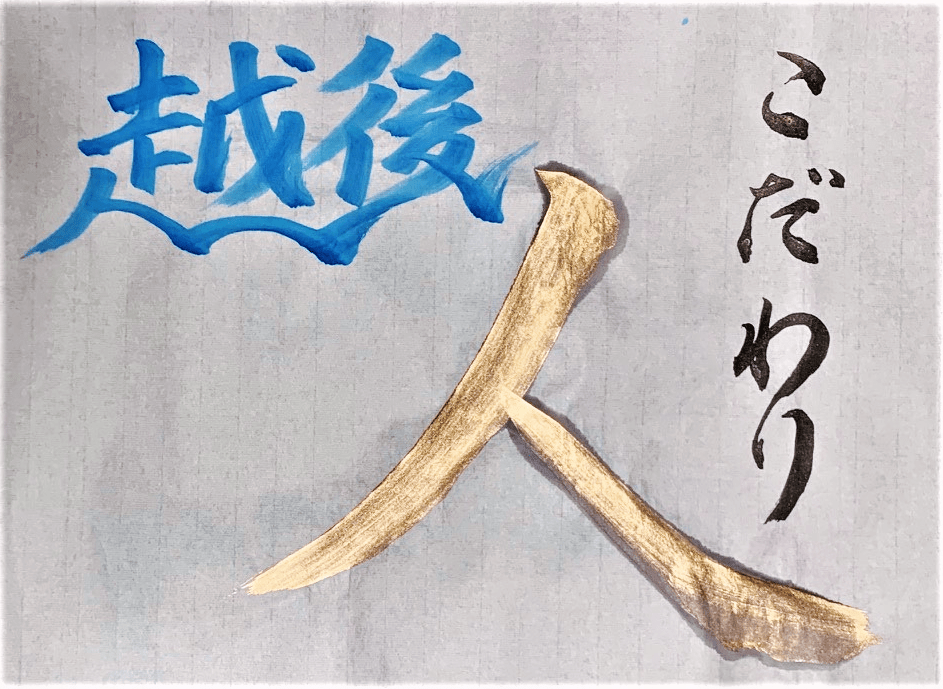 こだわり
越後
人